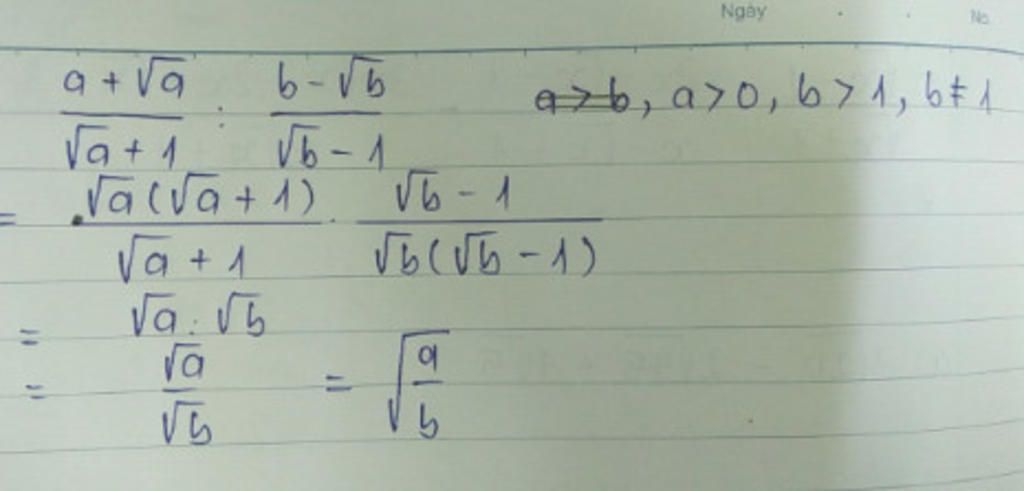 Ngày No.
\frac{a + \sqrt{a}}{\sqrt{a} + 1} : \frac{b - \sqrt{b}}{\sqrt{b} - 1} ~~a > b~~, a > 0, b > 1, b ≠ 1
= \frac{\sqrt{a}(\sqrt{a} + 1)}{\sqrt{a} + 1} . \frac{\sqrt{b} - 1}{\sqrt{b}(\sqrt{b} - 1)}
= \sqrt{a} : \sqrt{b}
= \frac{\sqrt{a}}{\sqrt{b}} = \sqrt{\frac{a}{b}}